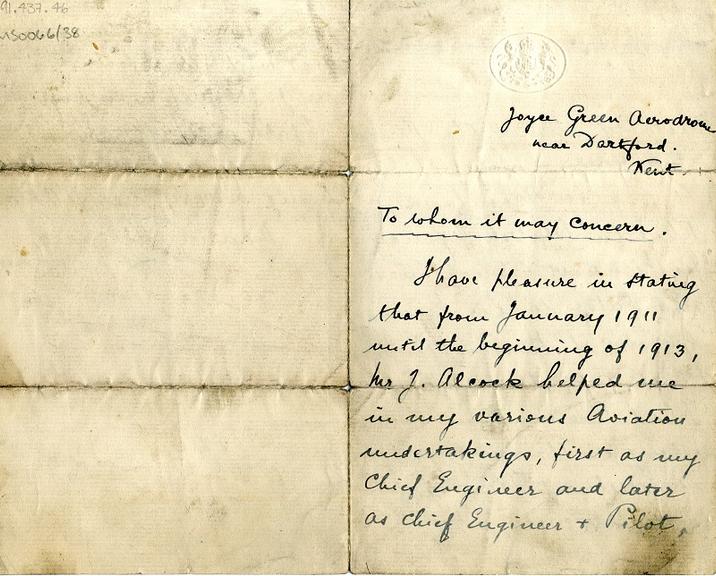 91.437.46
MS0066/38
Joyce Green Aerodrome
near Dartford.
Kent.
To whom it may concern.
I have pleasure in stating
that from January 1911
until the beginning of 1913,
Mr J. Alcock helped me
in my various Aviation
undertakings, first as my
Chief Engineer and later
as Chief Engineer + Pilot,